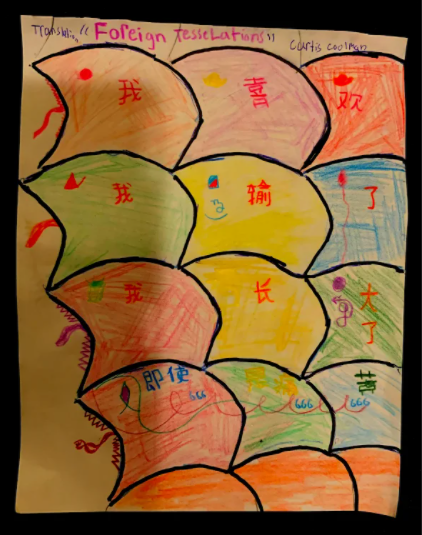 "Foreign Tesselations" Curtis Coolman
我 喜 欢
我 输 了
我 长 大了
即使
666 666 666